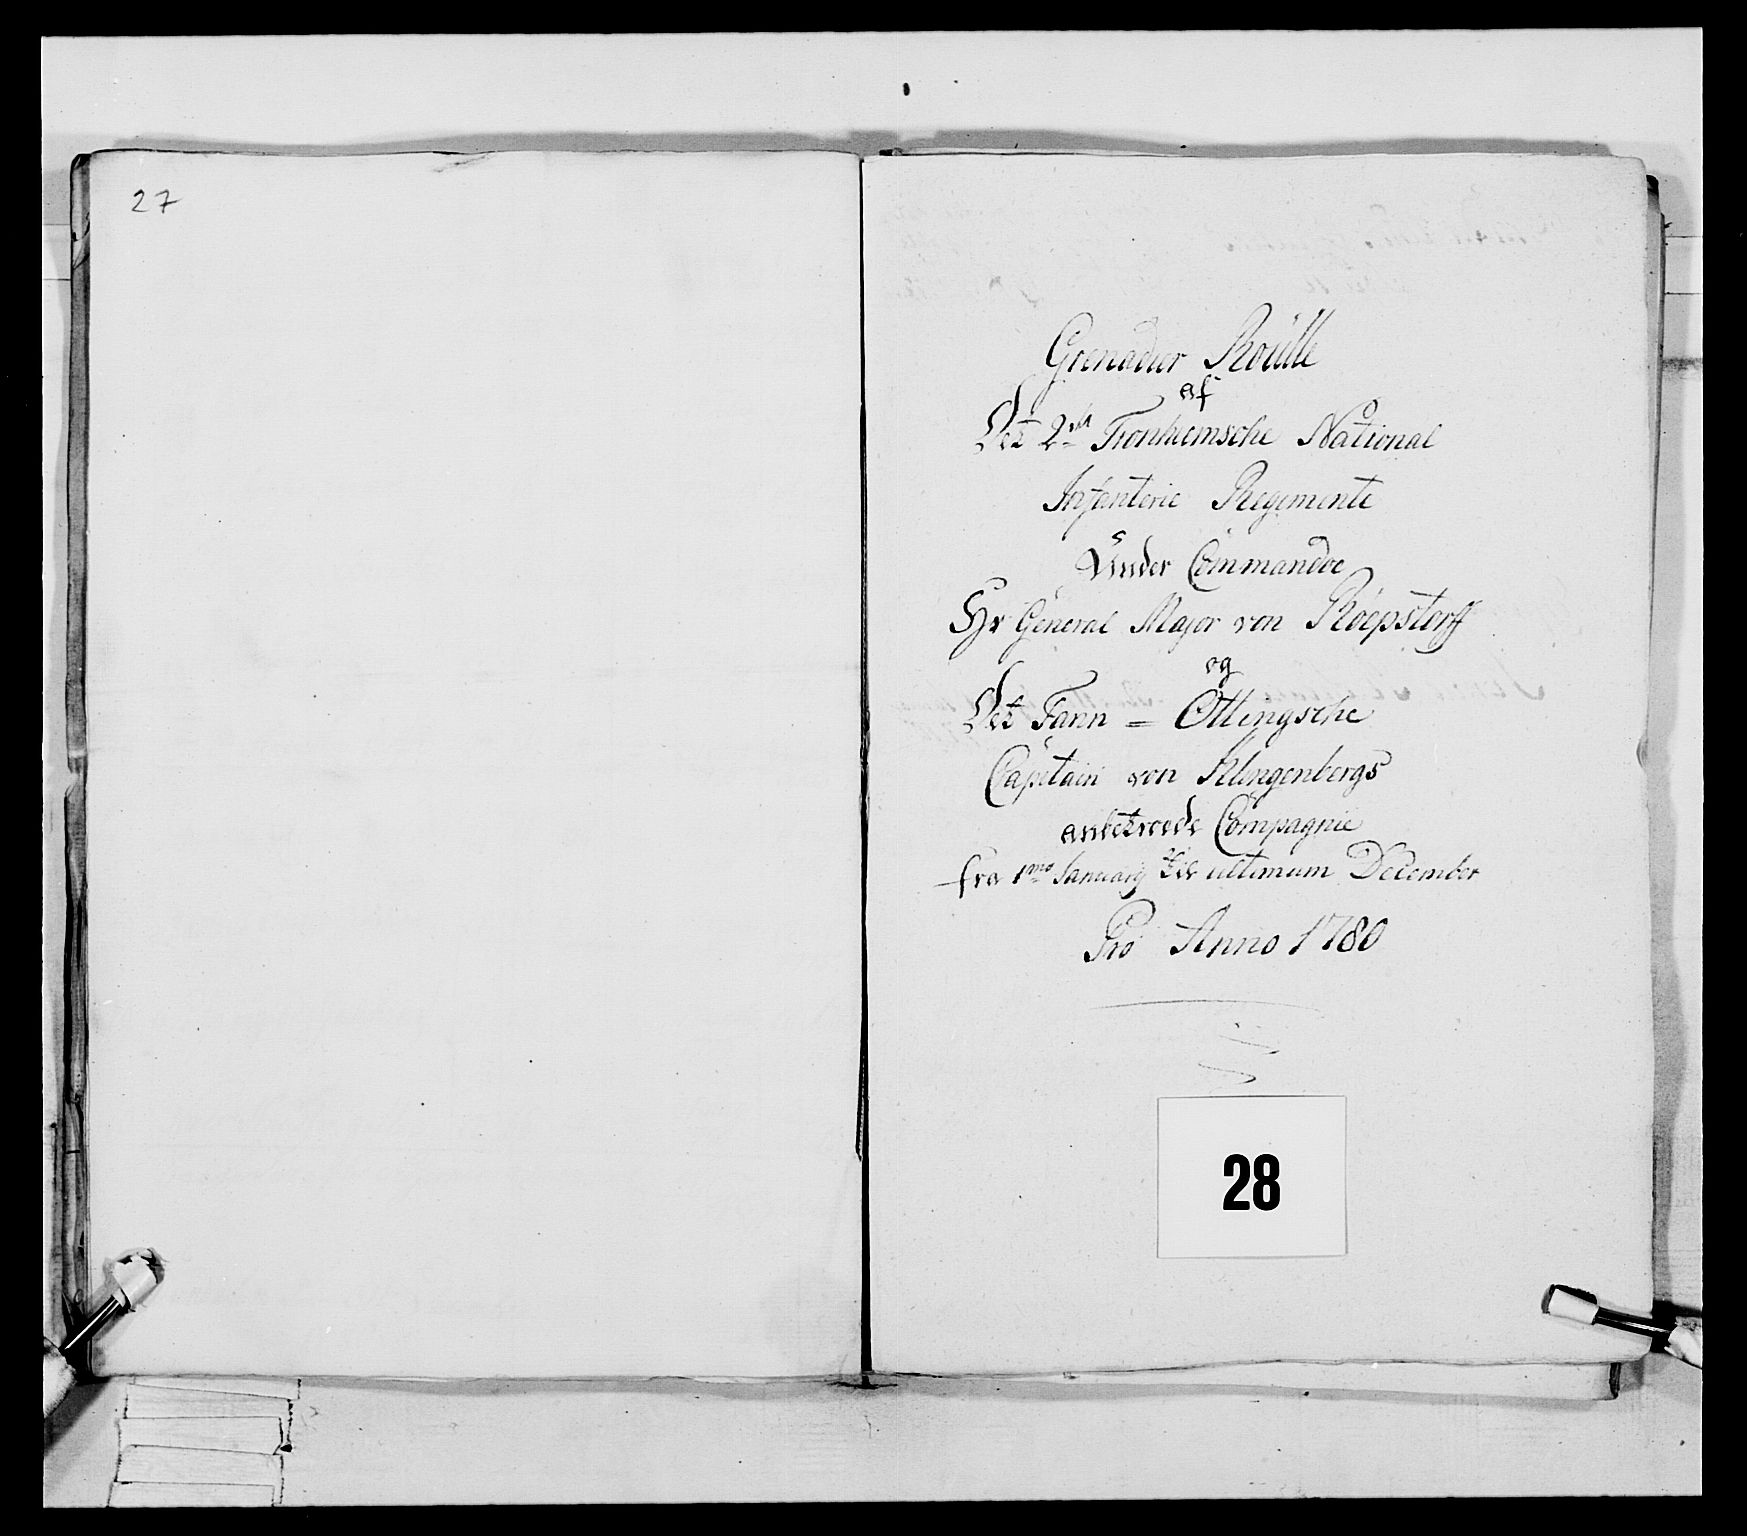 27
Grenadier Roulle
af
Det 2det Tronhiemsche National
Infanterie Regimente
Under Commandoe
Hr General Major von Röepstorff
og
Det Fann = Ottingsche
Capitain von Klingenbergs
anbetroede Compagnie
fra 1mo January til ultimum December
Pro Anno 1780
28